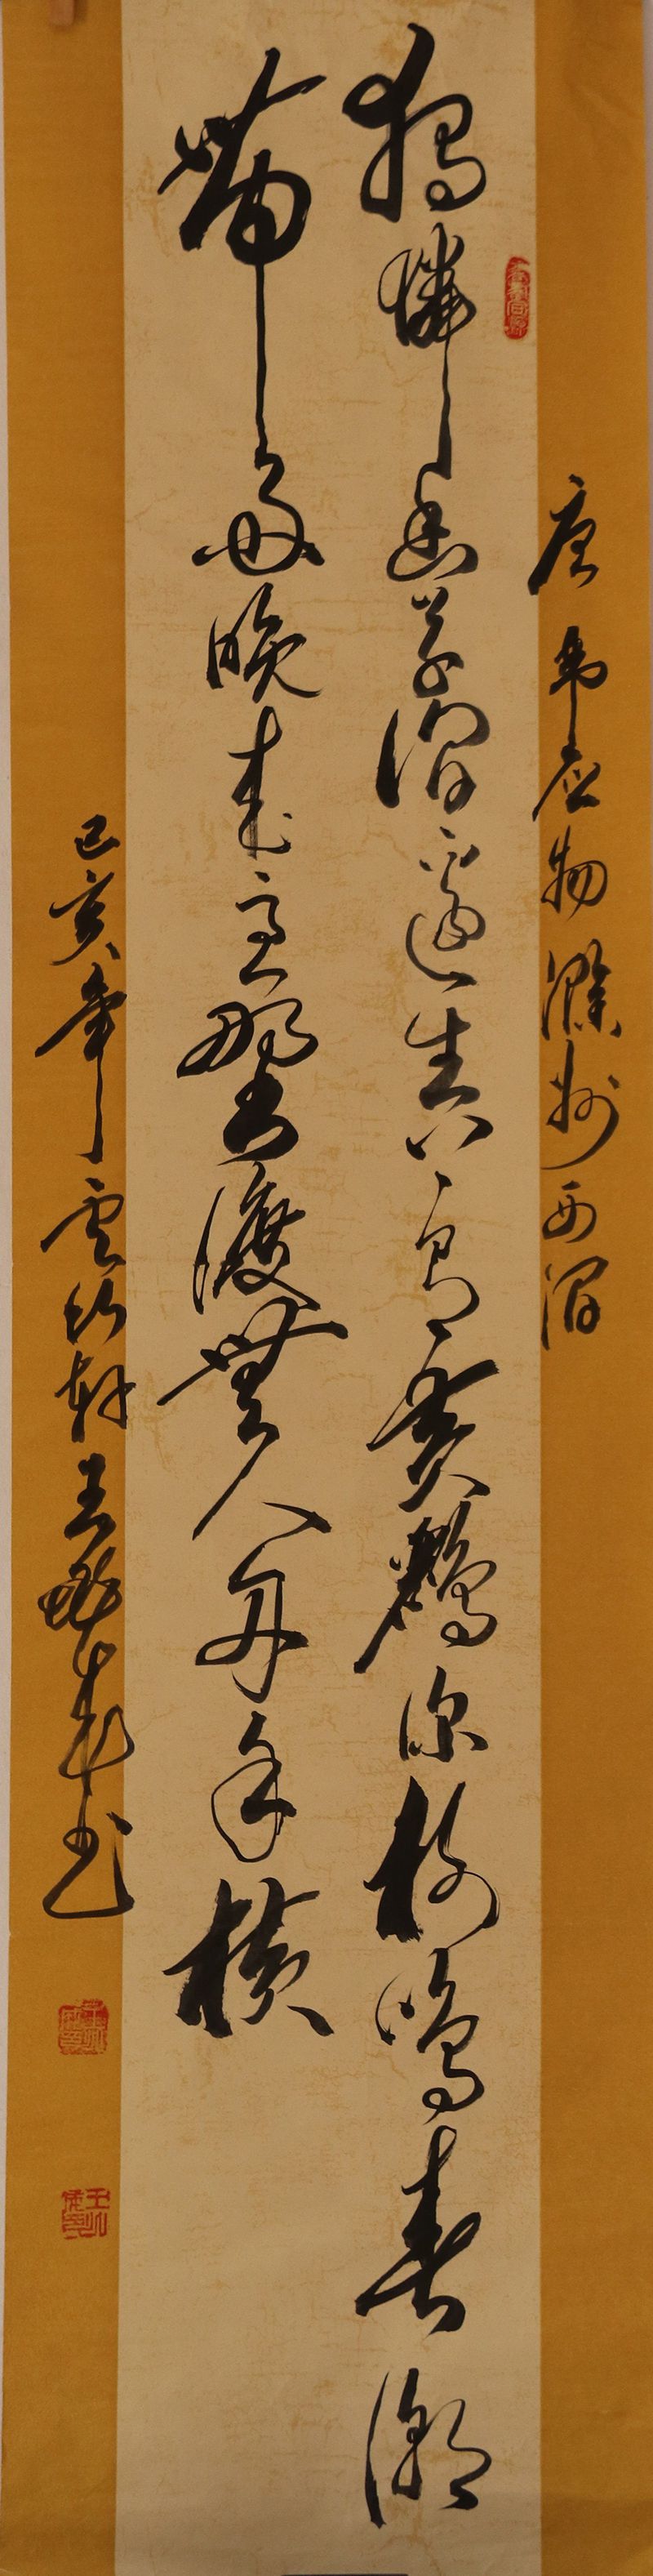 唐韦应物滁州西涧
獨憐幽草澗邊生上有黃鸝深樹鳴春潮
帶雨晚來急野渡無人舟自橫
己亥年雲竹軒王书